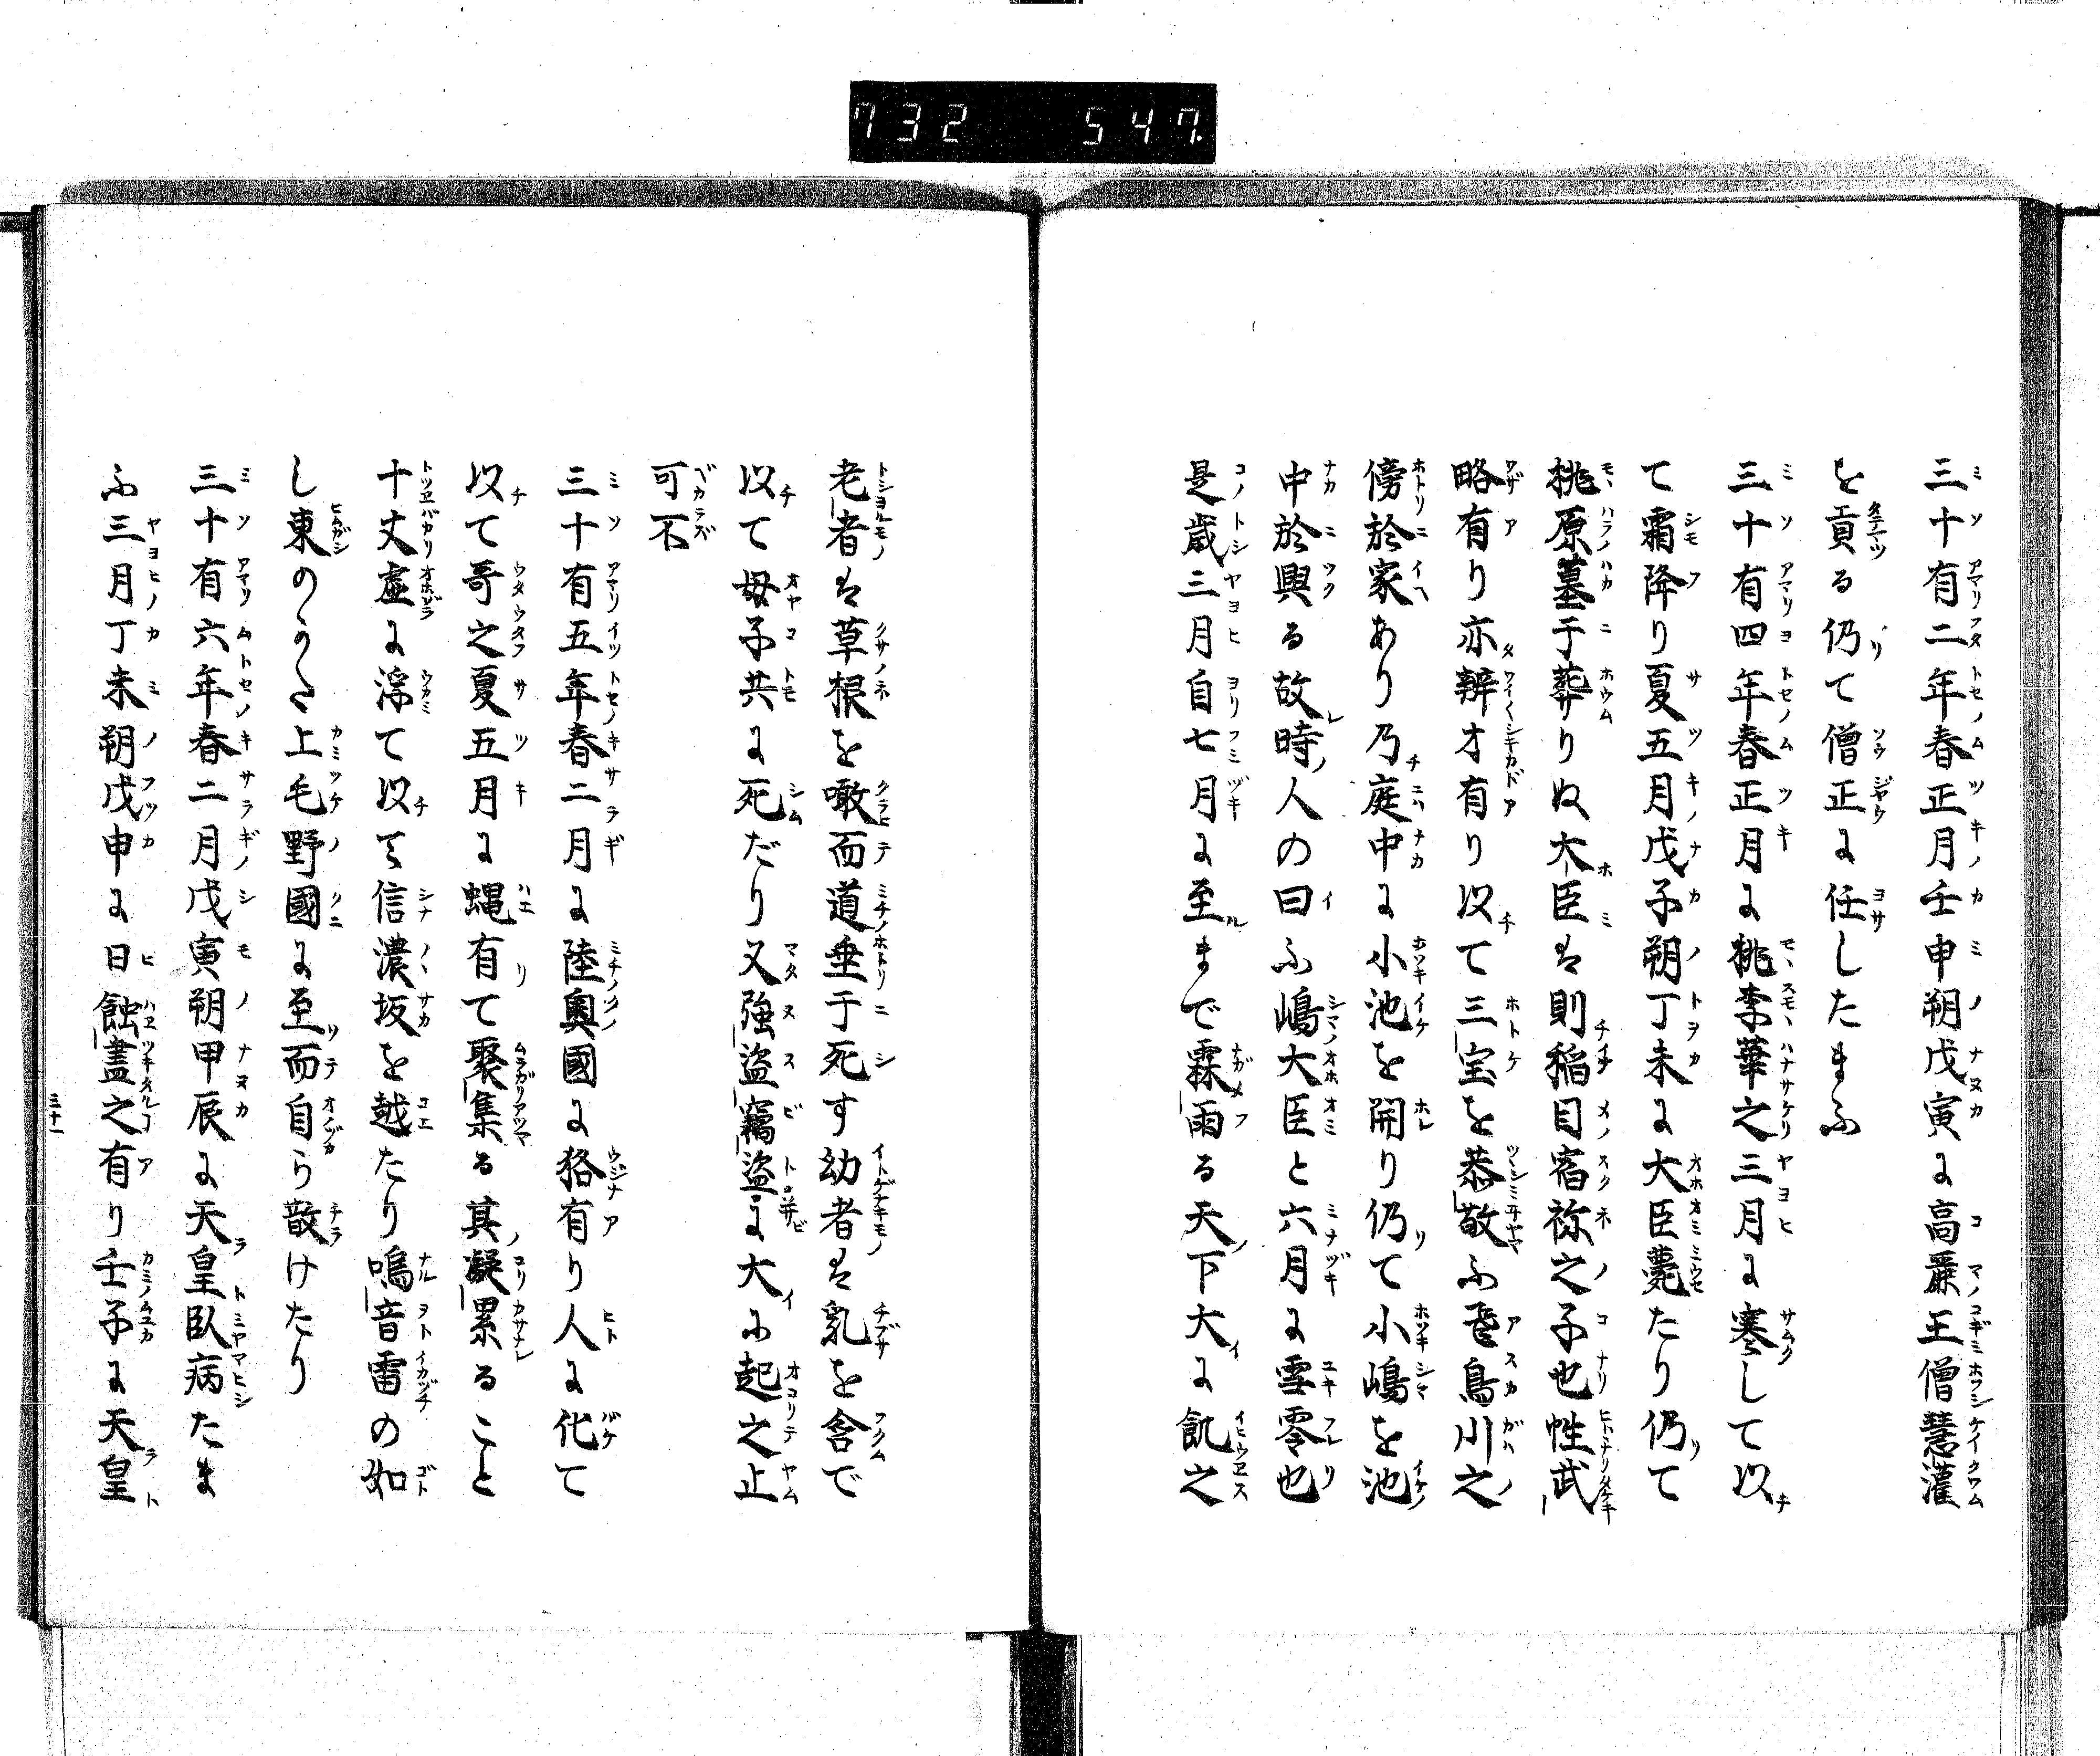 732 547
三十有二年春正月壬申朔戊寅に高麗王僧慧灌
を貢る仍て僧正に任したまふ
三十有四年春正月に桃李華之三月に寒して以
て霜降り夏五月戊子朔丁未に大臣薨たり仍て
桃原墓于葬りぬ大臣は則稲目宿祢之子也性武
略有り亦辨才有り以て三宝を恭敬ふ飛鳥川之
傍於家あり乃庭中に小池を開り仍て小嶋を池
中於興る故時人の曰ふ嶋大臣と六月に雪零也
是歳三月自七月に至まで霖雨る天下大に飢之
老者は草根を噉而道垂于死す幼者は乳を含で
以て母子共に死だり又強盗竊盗に大ふ起之止
可不
三十有五年春二月に陸奥國に狢有り人に化て
以て哥之夏五月に蝿有て聚集る其凝累ること
十丈虚に浮て以て信濃坂を越たり鳴音雷の如
し東のかた上毛野國に至而自ら散けたり
三十有六年春二月戊寅朔甲辰に天皇臥病たま
ふ三月丁未朔戊申に日蝕盡之有り壬子に天皇
三十一